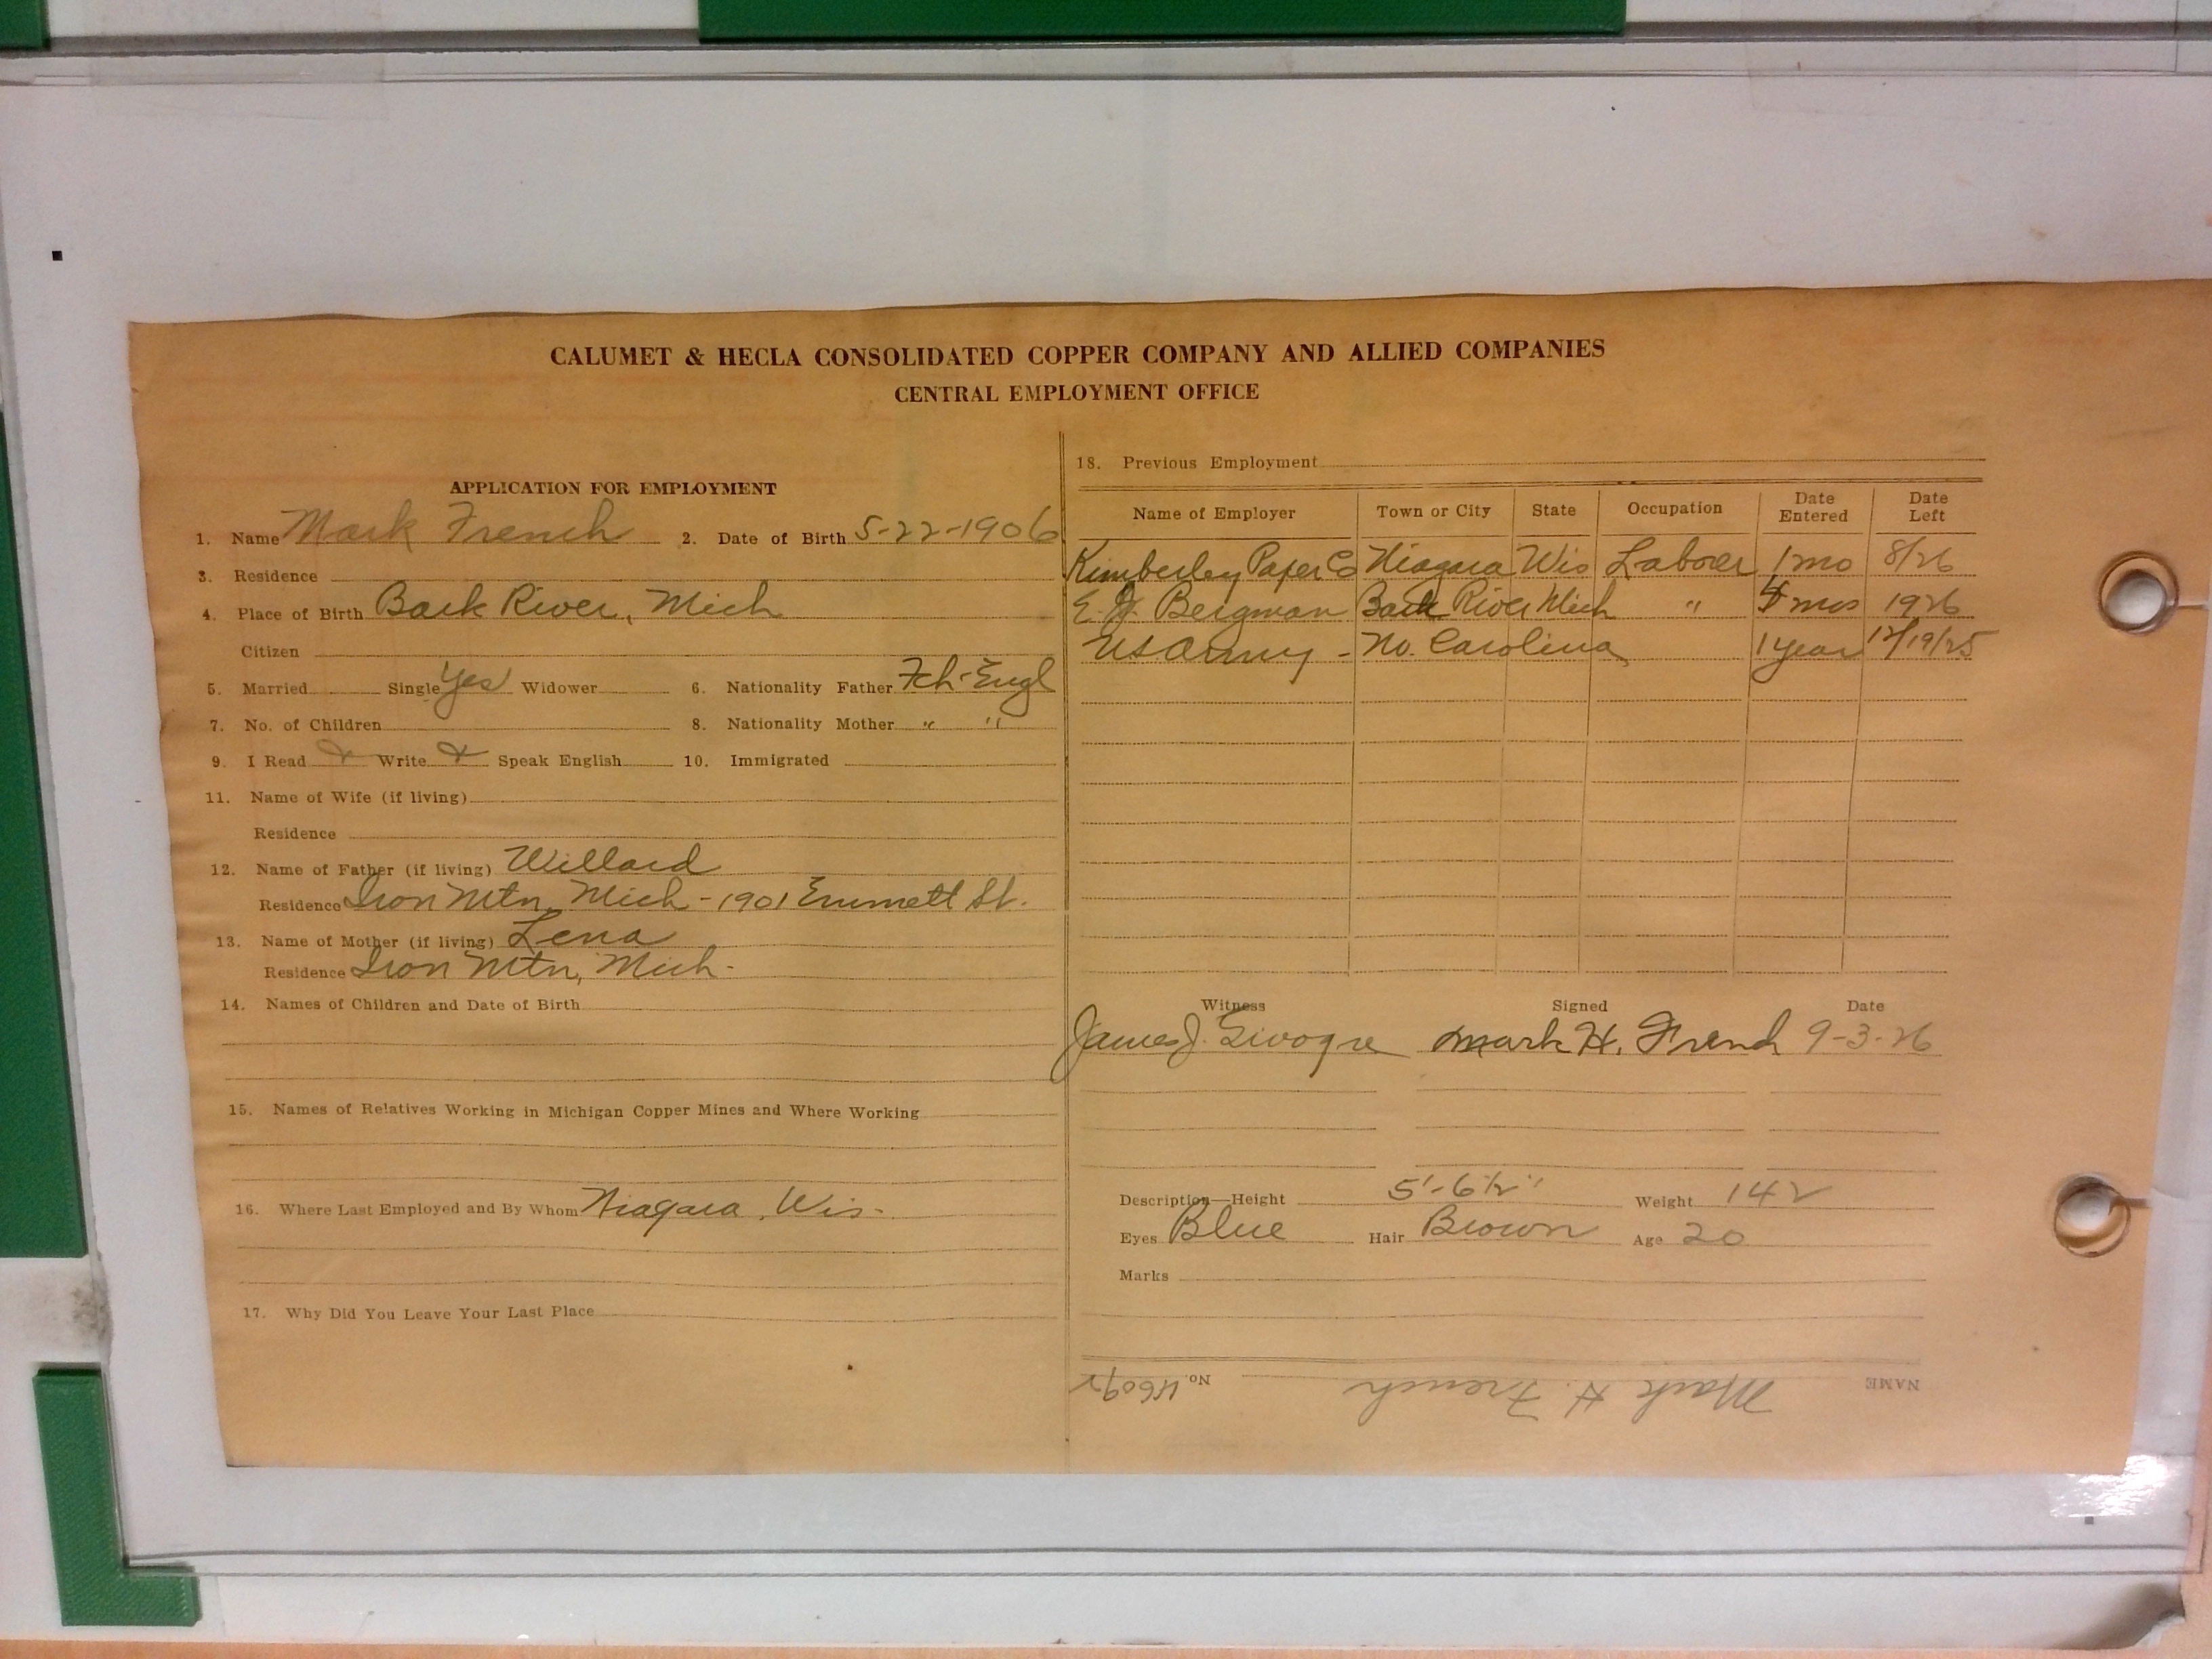 CALUMET & HECLA CONSOLIDATED COPPER COMPANY AND ALLIED COMPANIES
CENTRAL EMPLOYMENT OFFICE
APPLICATION FOR EMPLOYMENT
1. Name Mark French 2. Date of Birth 5-22-1906
3. Residence
4. Place of Birth Bark River, Mich
Citizen
5. Married Single Yes Widower 6. Nationality Father Fch-Engl
7. No. of Children 8. Nationality Mother " "
9. I Read & Write & Speak English 10. Immigrated
11. Name of Wife (if living)
Residence
12. Name of Father (if living) Willard
Residence Iron Mtn, Mich - 1901 Emmett St.
13. Name of Mother (if living) Lena
Residence Iron Mtn, Mich-
14. Names of Children and Date of Birth
15. Names of Relatives Working in Michigan Copper Mines and Where Working
16. Where Last Employed and By Whom Niagara, Wis-
17. Why Did You Leave Your Last Place
18. Previous Employment
Name of Employer Town or City State Occupation Date Entered Date Left
Kimberley Paper Co Niagara Wis Laborer 1 mo 8/26
E. Bergman Bark River Mich " mos 1926
US Army - No. Carolina 1 year 12/19/25
Witness Signed Date
James J. Mark H. French 9-3-26
Description—Height 5'-6 1/2" Weight 142
Eyes Blue Hair Brown Age 20
Marks
NAME Mark H. French No. 46092